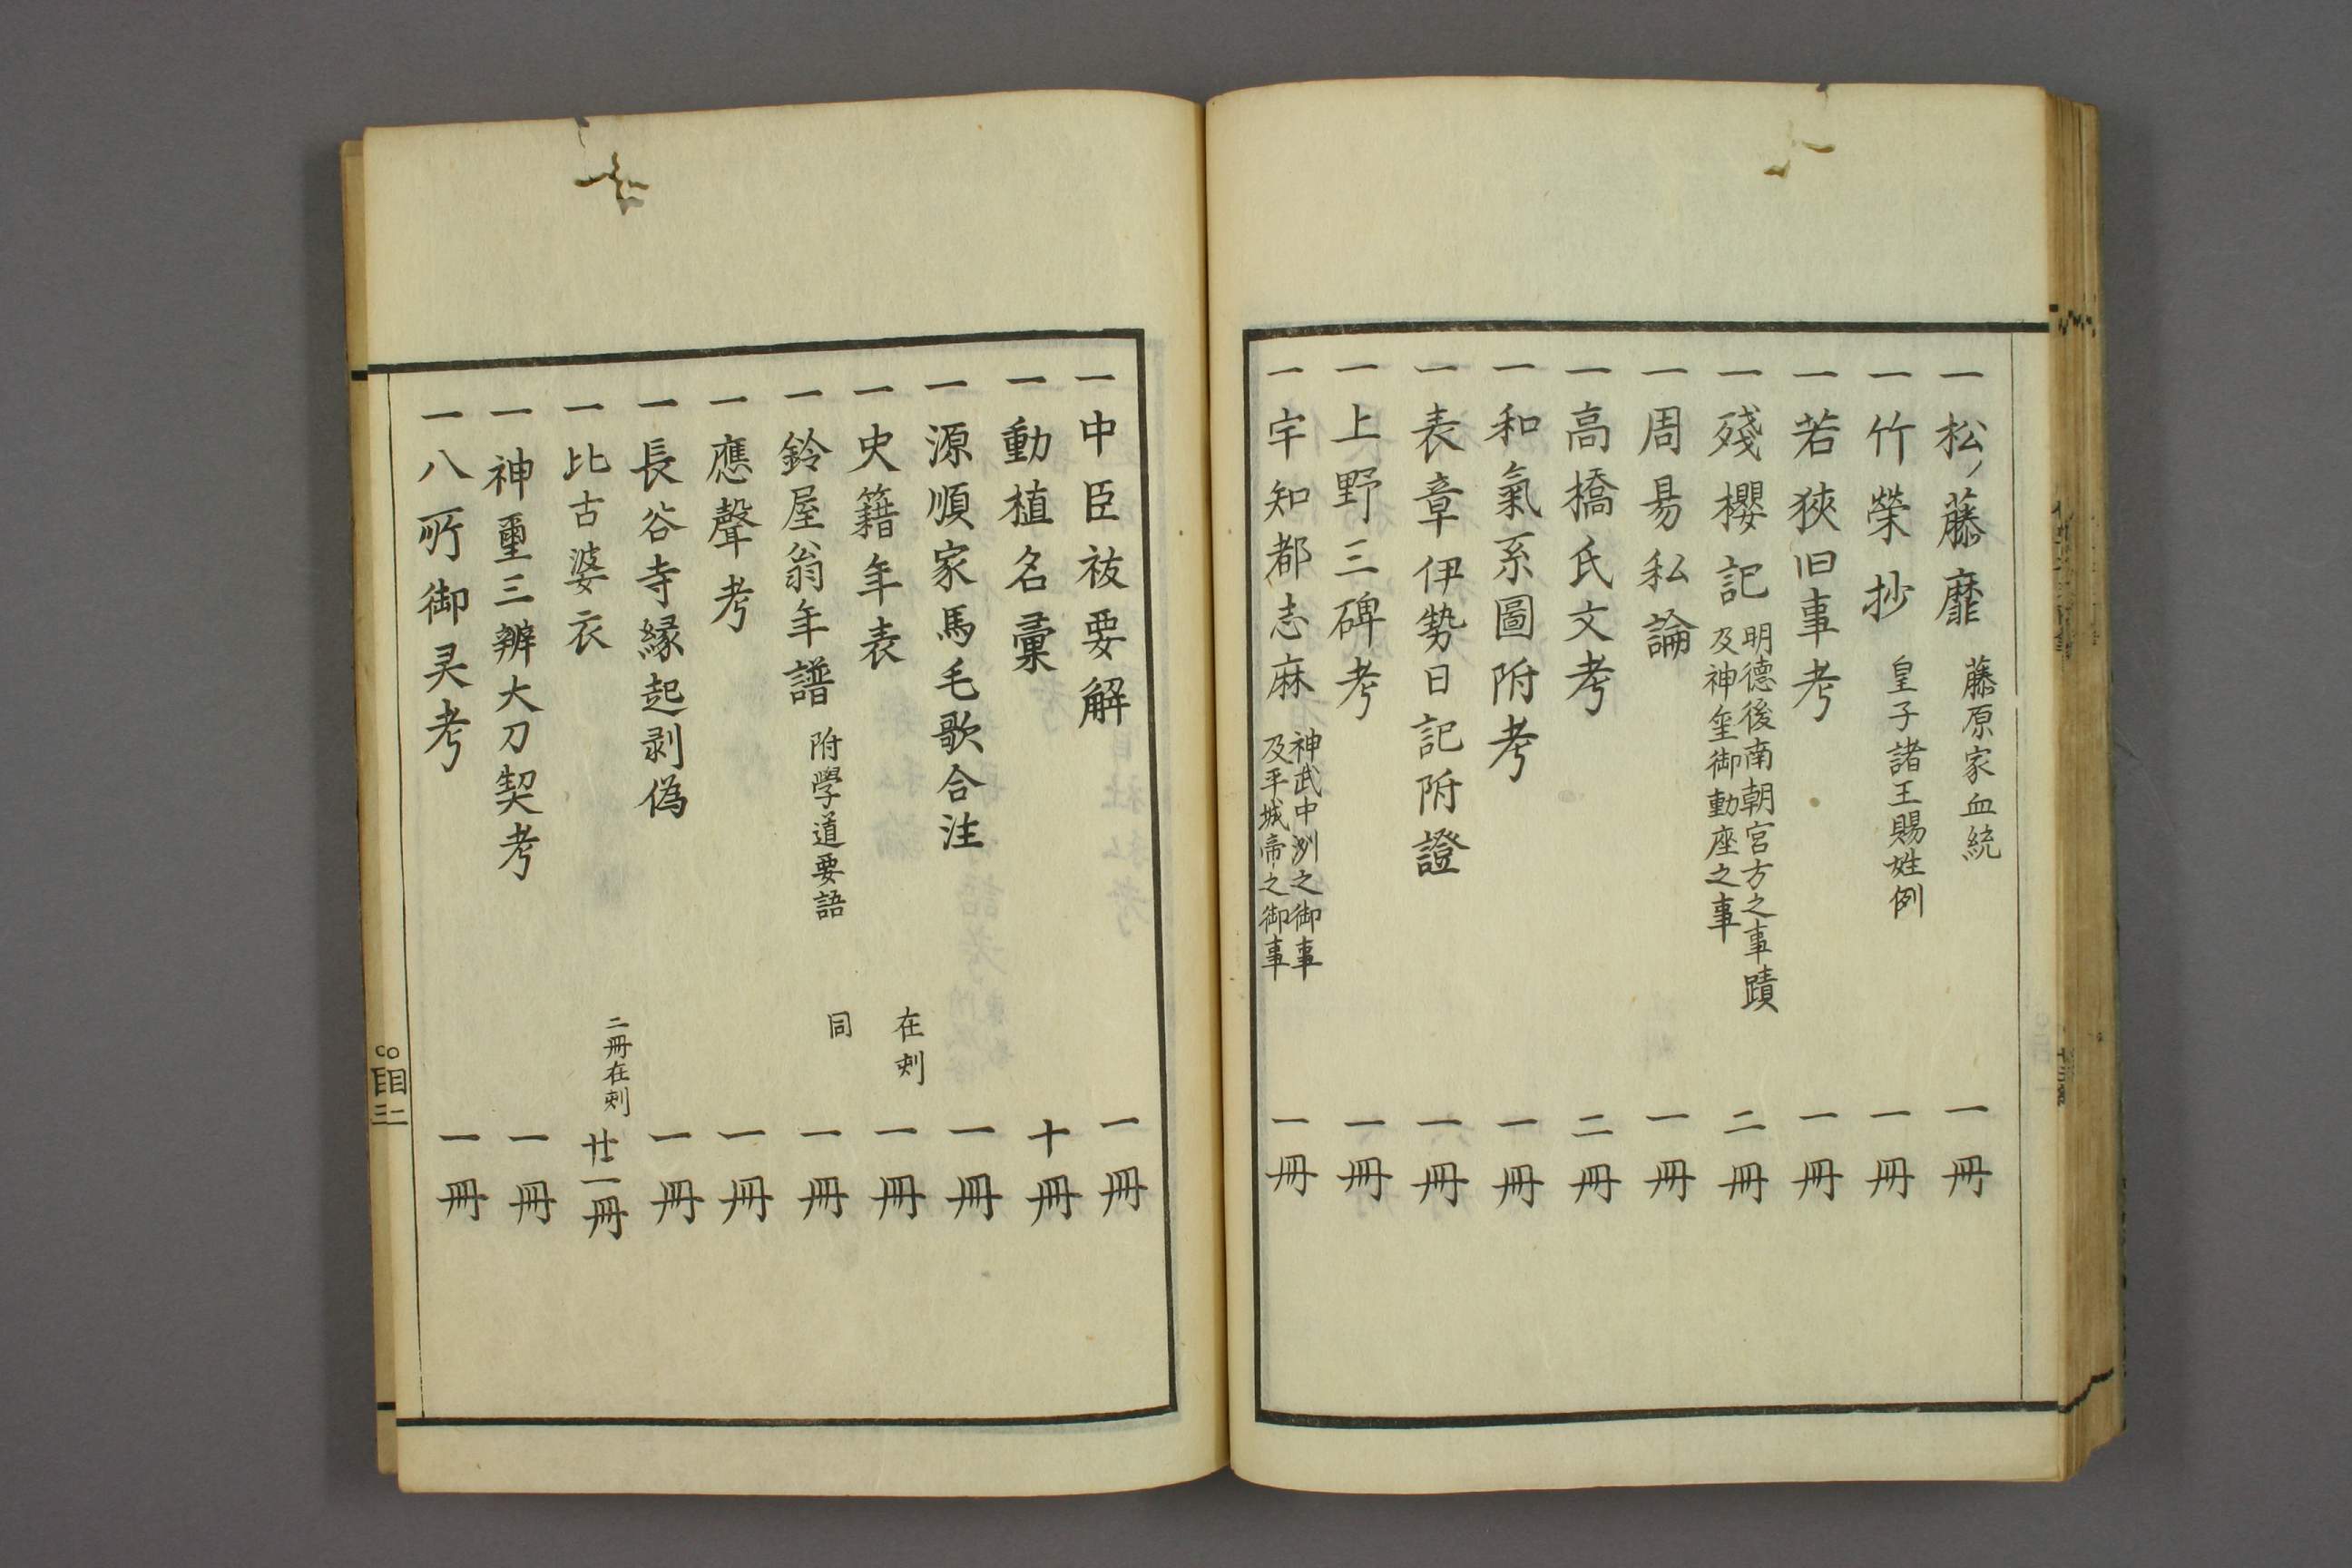 一松ノ藤靡 藤原家血統 一冊
一竹榮抄 皇子諸王賜姓例 一冊
一若狹旧事考 一冊
一殘櫻記 明德後南朝宮方之事蹟 及神璽御動座之事 二冊
一周易私論 一冊
一高橋氏文考 二冊
一和氣系圖附考 一冊
一表章伊勢日記附證 一冊
一上野三碑考 一冊
一宇知都志麻 神武中洲之御事 及平城帝之御事 一冊
一中臣祓要解 一冊
一動植名彙 十冊
一源順家馬毛歌合注 一冊
一史籍年表 在刻 一冊
一鈴屋翁年譜 附學道要語 同 一冊
一應聲考 一冊
一長谷寺緣起剥偽 一冊
一比古婆衣 二冊在刻 廿一冊
一神璽三辨大刀契考 一冊
一八所御灵考 一冊
目二